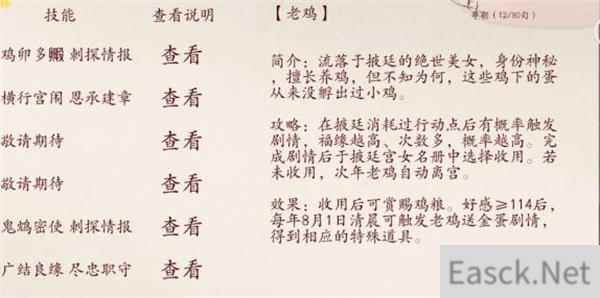 技能 查看说明
鸡卵多毈 刺探情报 查看
横行宫闱 恩承建章 查看
敬请期待 查看
敬请期待 查看
鬼鸩密使 刺探情报 查看
广结良缘 尽忠职守 查看
(12/90旬)
【老鸡】
简介：流落于掖廷的绝世美女，身份神秘
，擅长养鸡，但不知为何，这些鸡下的蛋
从来没孵出过小鸡。
攻略：在掖廷消耗过行动点后有概率触发
剧情，福缘越高、次数多，概率越高。完
成剧情后于掖廷宫女名册中选择收用。若
未收用，次年老鸡自动离宫。
效果：收用后可赏赐鸡粮。好感≥114后，
每年8月1日清晨可触发老鸡送金蛋剧情，
得到相应的特殊道具。
Easck.Net